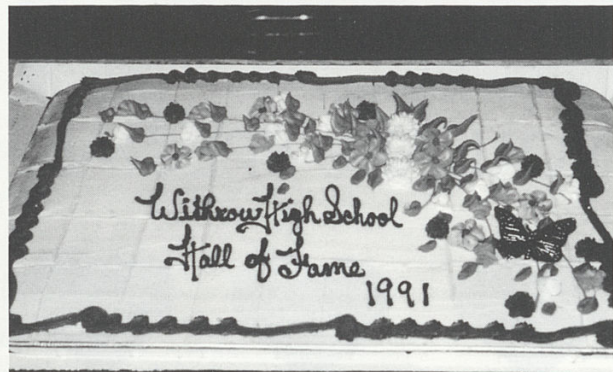 Withrow High School
Hall of Fame
1991